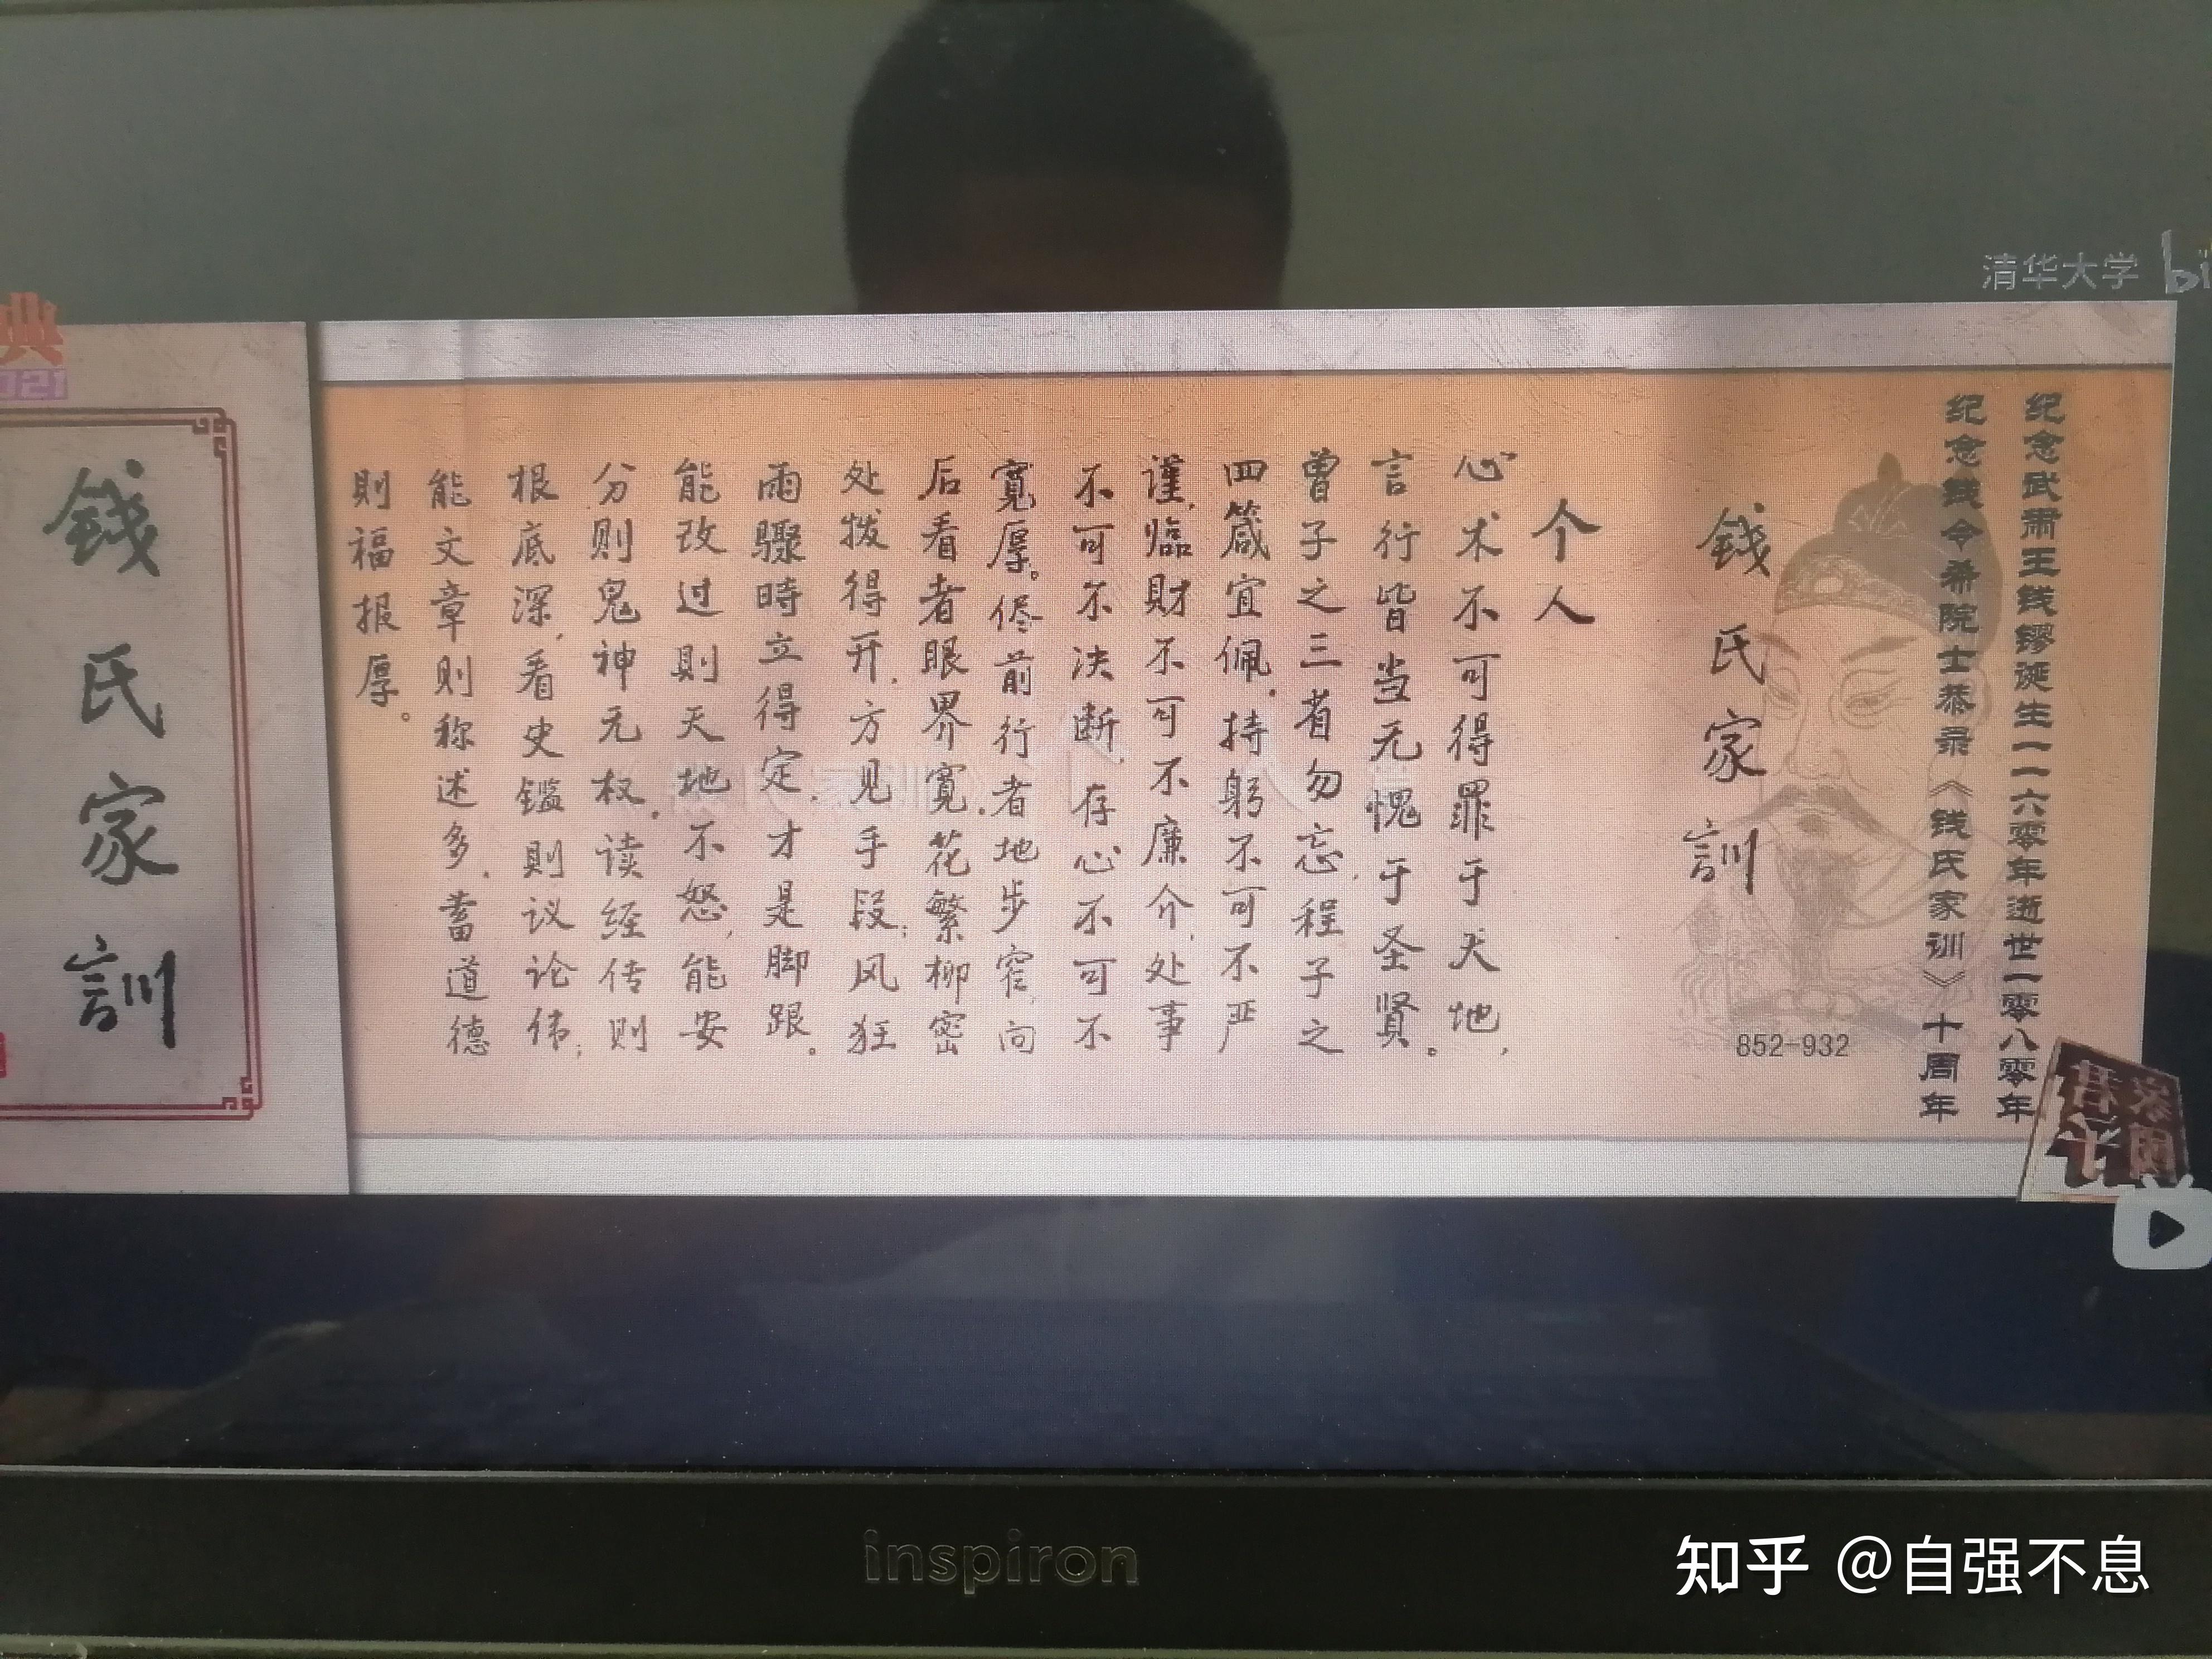 清华大学 bi
纪念武肃王钱镠诞生一一六零年逝世一零八零年
纪念钱令希院士恭录《钱氏家训》十周年
錢氏家訓
852-932
个人
心术不可得罪于天地，
言行皆当无愧于圣贤。
曾子之三省勿忘，程子之
四箴宜佩。持躬不可不严
谨，臨財不可不廉介，处事
不可不决断，存心不可不
寬厚。侭前行者地步窄，向
后看者眼界寬。花繁柳密
处拨得开，方见手段；风狂
雨驟時立得定，才是脚跟。
能改过則天地不怒，能安
分则鬼神无权。读经传则
根底深，看史鑑則议论伟；
能文章则称述多，蓄道德
則福报厚。
典
021
錢氏家訓
inspiron
知乎 @自强不息